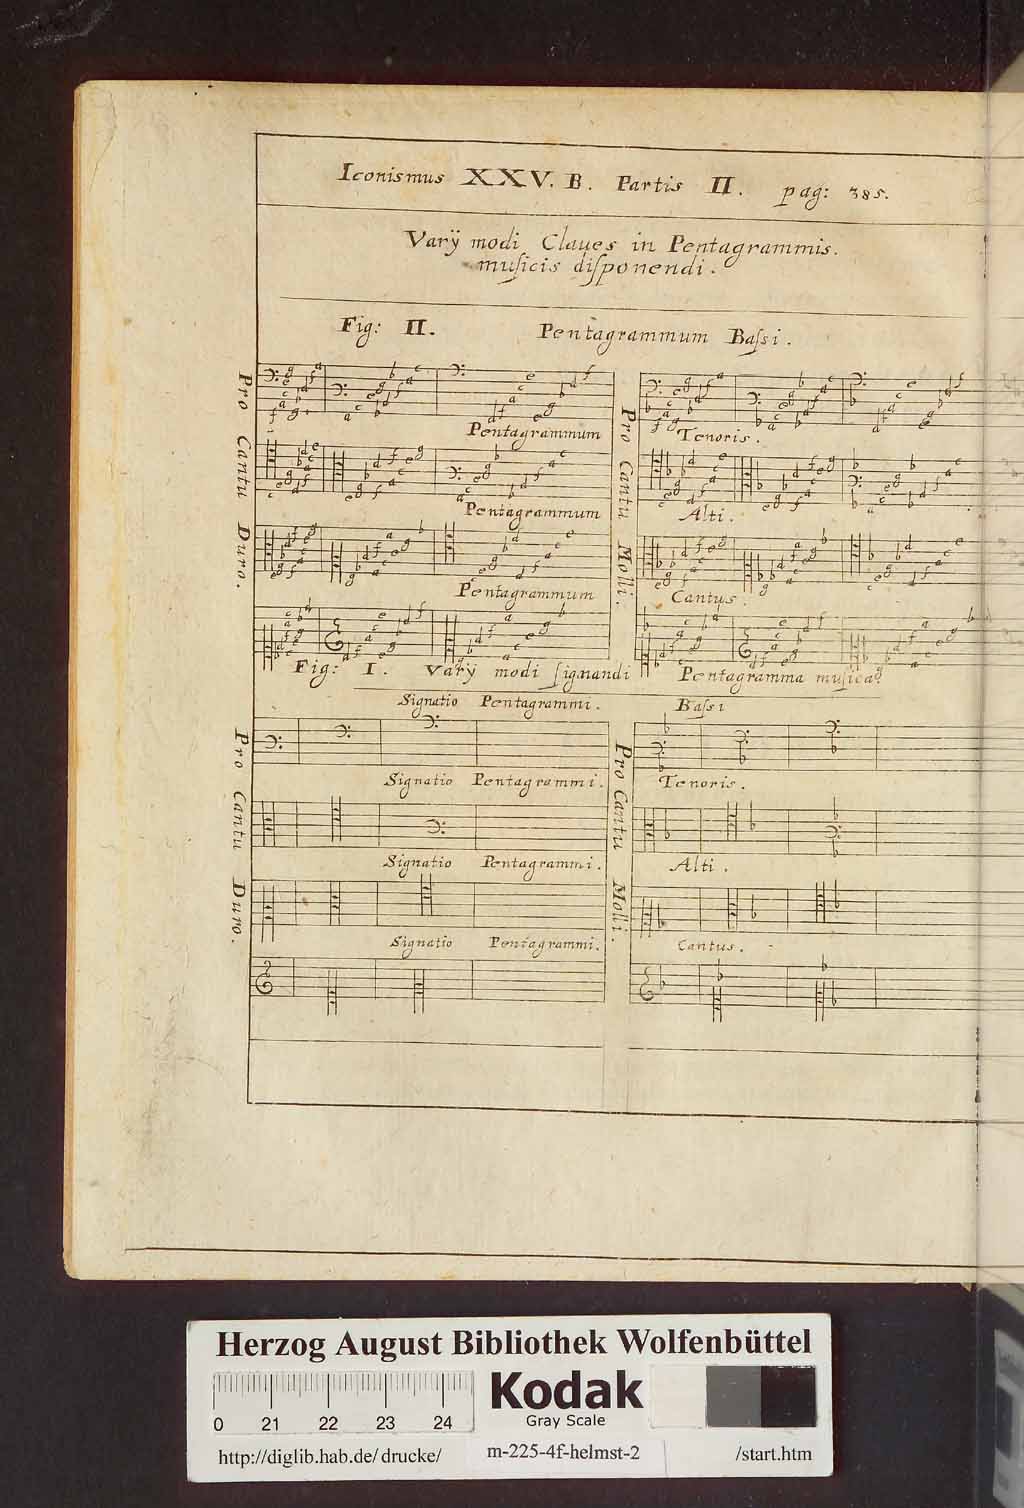 Iconismus XXV. B. Partis II. pag: 385.
Varÿ modi Claues in Pentagrammis.
muſicis diſponendi.
Fig: II. Pentagrammum Baſsi.
Pro Cantu Duro.
Pro Cantu Molli.
Pentagrammum Tenoris.
Pentagrammum Alti.
Pentagrammum Cantus.
Fig: I. Varÿ modi ſignandi Pentagramma muſica?
Signatio Pentagrammi. Baſsi
Pro Cantu Duro.
Pro Cantu Molli.
Signatio Pentagrammi. Tenoris.
Signatio Pentagrammi. Alti.
Signatio Pentagrammi. Cantus.
Herzog August Bibliothek Wolfenbüttel
0 21 22 23 24
Kodak
Gray Scale
http://diglib.hab.de/drucke/ m-225-4f-helmst-2 /start.htm